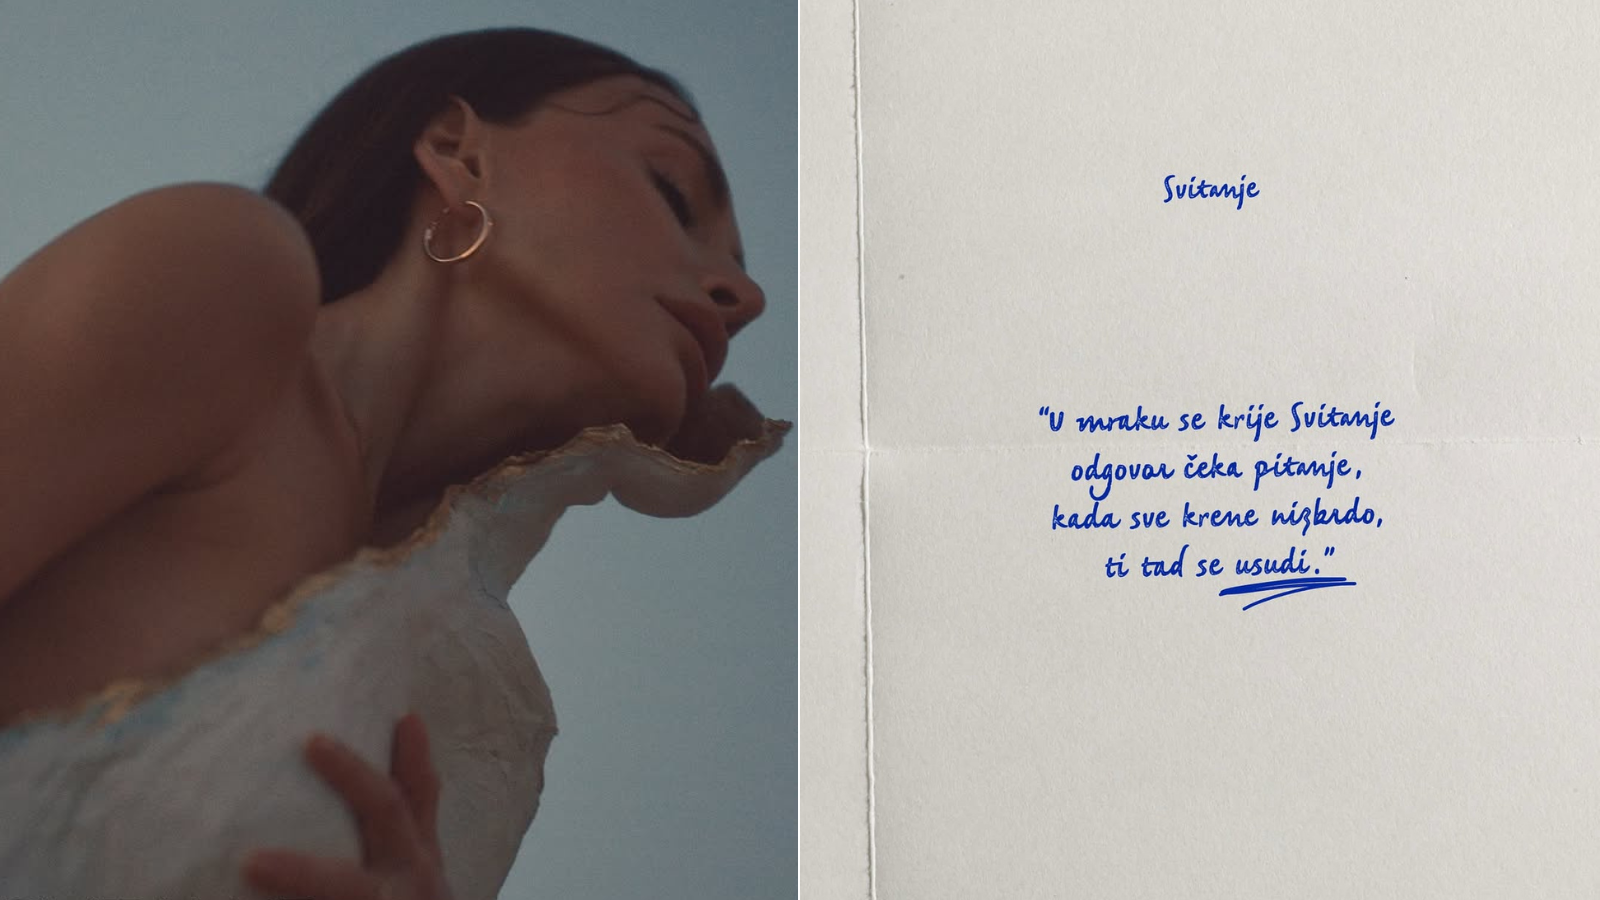 Svitanje
"U mraku se krije Svitanje
odgovor čeka pitanje,
kada sve krene nizbrdo,
ti tad se usudi."